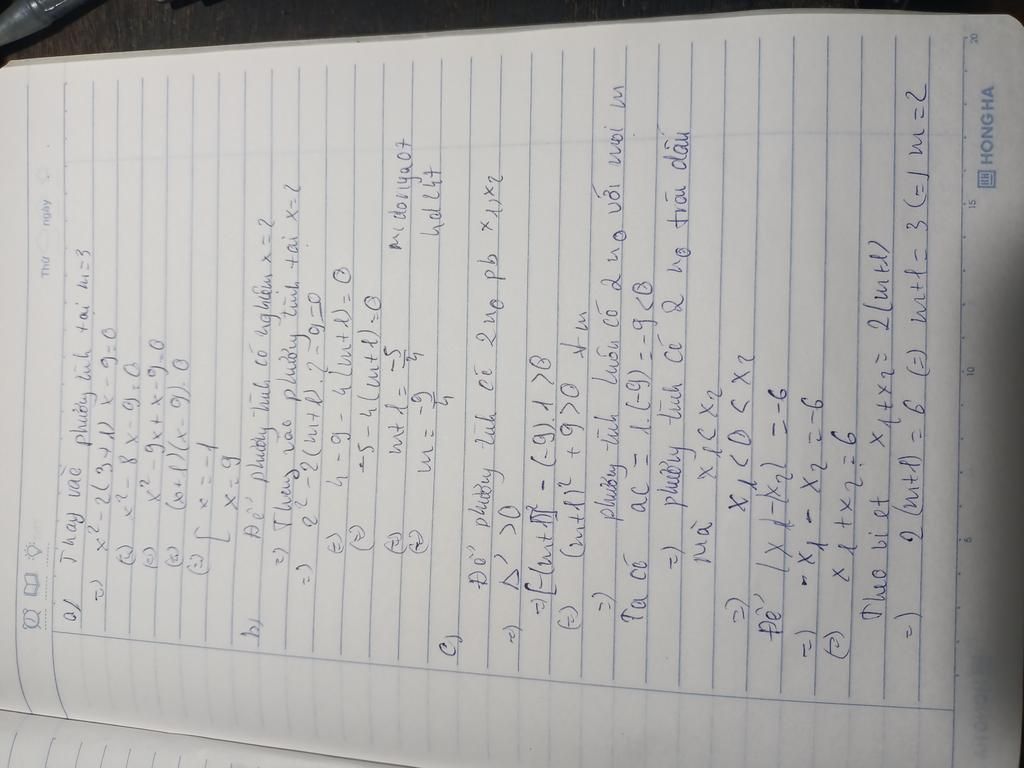 Thứ ngày
a) Thay vào phương tình tại m=3
=) x² - 2(3+1) x - 9=0
(=) x² - 8x - 9=0
(=) x² - 9x + x - 9=0
(=) (x+1)(x-9)=0
(=) [ x = -1
x = 9
b, Để phương tình có nghiệm x=2
=) Thay vào phương tình tại x=2
=) 2² - 2(m+1).2 - 9=0
(=) 4 - 9 - 4(m+1)=0
(=) -5 - 4(m+1)=0
(=) m+1 = -5/4
(=) m = -9/4
c, Để phương tình có 2 no pb x1, x2
=) Δ' >0
=) [-(m+1)]² - (-9).1 >0
(=) (m+1)² + 9>0 ∀m
=) phương tình luôn có 2 no với mọi m
Ta có ac = 1.(-9) = -9<0
=) phương tình có 2 no trái dấu
mà x1< x2
=) x1 < 0 < x2
Để |x1|-|x2| = -6
=) -x1 - x2 = -6
(=) x1 + x2 = 6
Theo bi et x1+x2 = 2(m+1)
=) 2(m+1) = 6 (=) m+1 = 3 (=) m=2
5 10 15 20
HONG HA